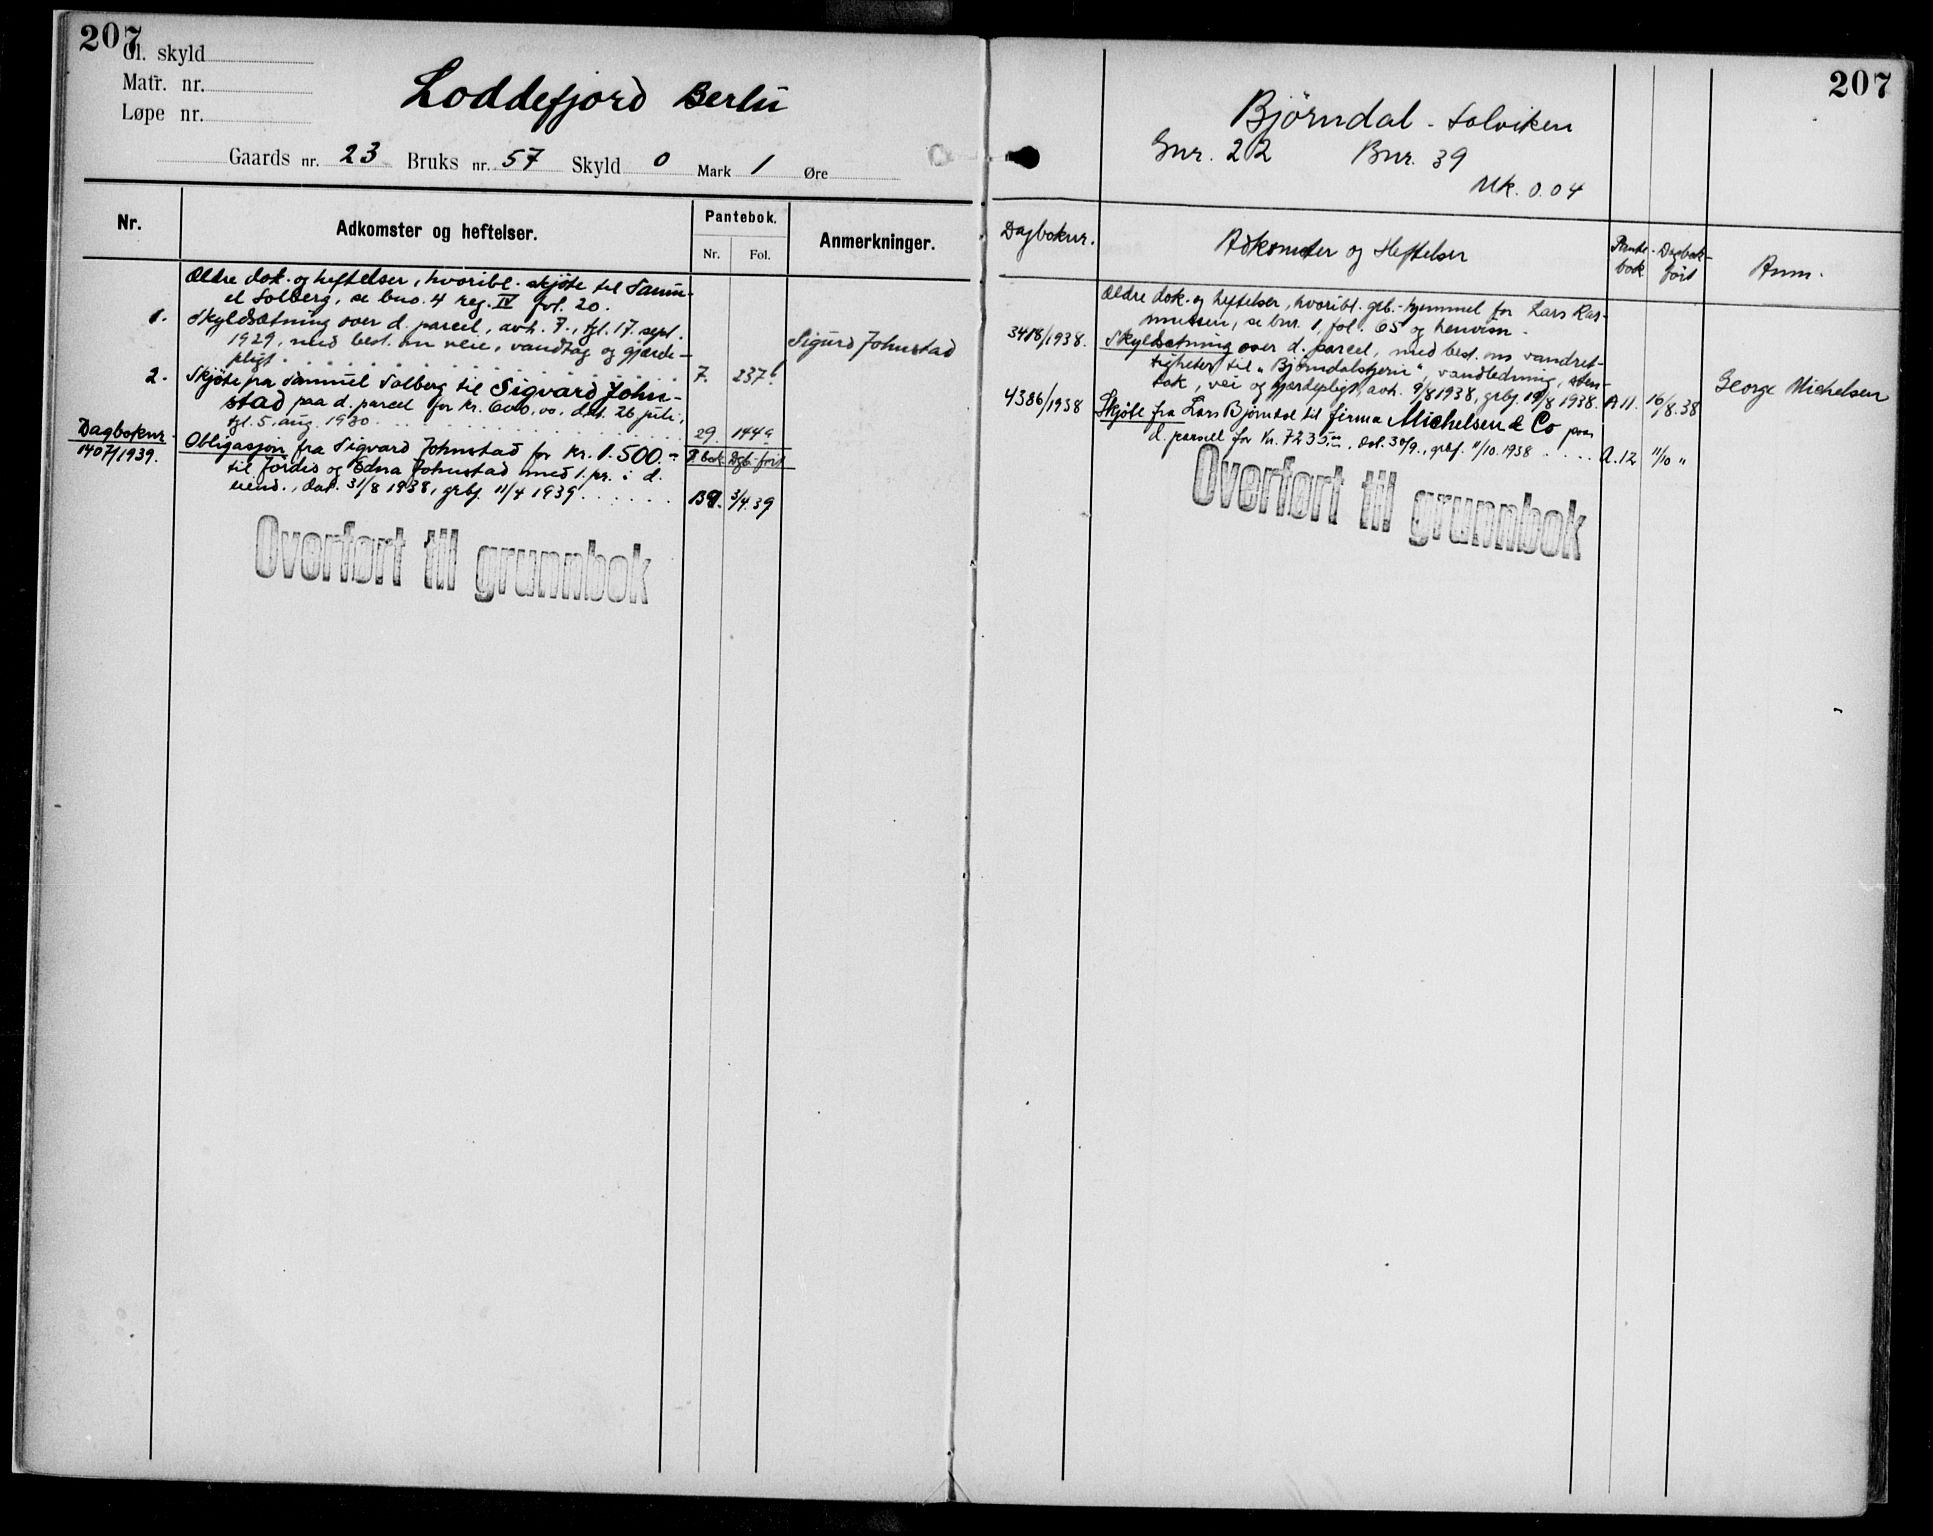 207
Gl. skyld
Matr. nr.
Løpe nr.
Loddefjord Berlü
Gaards nr. 23 Bruks nr. 57 Skyld 0 Mark 1 Øre
Nr.
Adkomster og heftelser.
Pantebok.
Nr. Fol.
Anmerkninger.
Ældre dok. og heftelser, hvoribl. skjøte til Samu-
el Solberg, se bno. 4 reg. IV fol. 20.
1. Skyldsætning over d. parcel, avh. 7., tgl. 17. sept.
1929, med best. om veie, vandtag og gjærde-
pligt . . . . . . . . . . 7. 237b
2. Skjøte fra Samuel Solberg til Sigvard John-
stad paa d. parcel for kr. 600,00, dat. 26 juli,
tgl. 5. aug. 1930. . . . . . . . . . 29. 144a
Sigurd Johnstad
Dagboknr.
1407/1939.
Obligasjon fra Sigvard Johnstad for kr. 1.500.-
P.bok Dgb. ført
til Jordis og Edna Johnstad med 1. pr. i d.
eiend., dat. 31/8 1938, grbf. 11/4 1939 . . . . . . 3/4.39
Overført til grunnbok
207
Bjørndal - Solviken
Gnr. 22 Bnr. 39
Mk. 0.04
Dagboknr.
Adkomster og Heftelser
Pante-
bok
Dagbok-
ført
Anm.
Ældre dok. og heftelser, hvoribl. grb.-hjemmel for Lars Ras-
mussen, se bnr. 1, fol. 65 og henvisn.
3418/1938. Skyldsetning over d. parcel, med best. om vandret-
tigheter til "Bjørndalstjern", vandledning, sten-
tak, vei og gjerdepligt, avh. 9/8 1938, grbf. 19/8 1938. A 11. 16/8.38
George Michelsen
4386/1938 Skjøte fra Lars Bjørndal til firma Michelsen & Co paa
d. parsel for kr. 7235.00, dat. 30/9., grbf. 11/10.1938 . . . . A.12 11/10 "
Overført til grunnbok